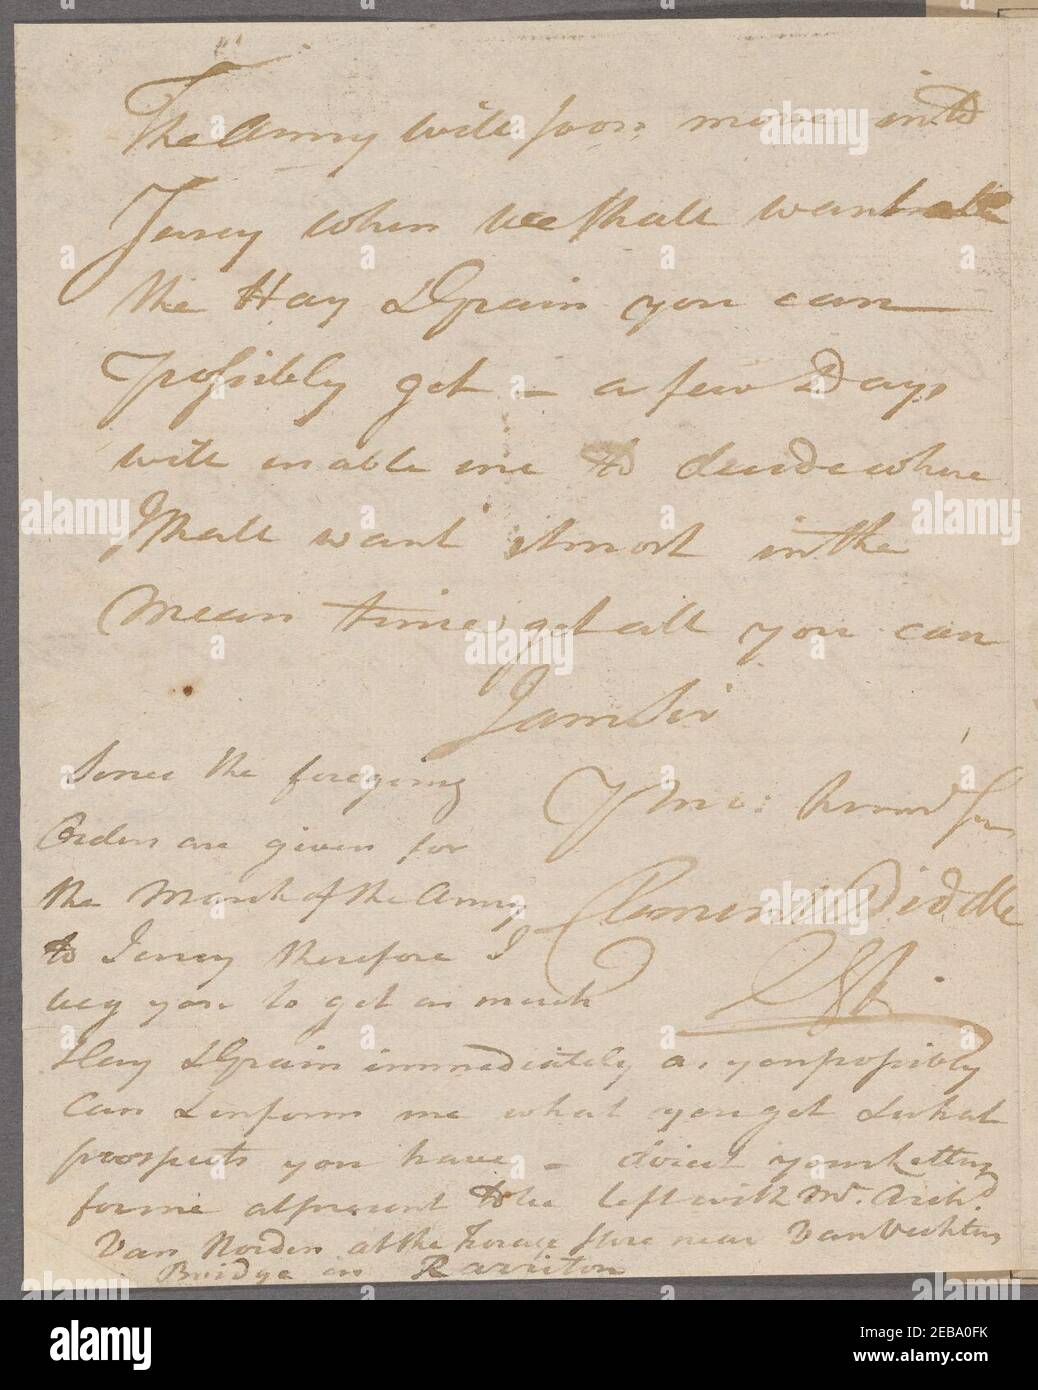 The Army will soon move into
Jersey when we shall want all
the Hay & Grain you can
possibly get – a few Days
will enable me to decide where
I shall want it most in the
mean time get all you can
I am Sir
Since the foregoing
Orders are given for
the March of the Army
to Jersey therefore I
beg you to get as much
Hay & Grain immediately as you possibly
Can & inform me what you get & what
prospects you have – direct your Letters
for me at present to be left with Mr. Archd.
Van Norden at the Forage Store near Van Vechtens
Bridge in Rariton
Y mo: 
Clement Biddle
alamy
Image ID: 2EBA0FK
www.alamy.com